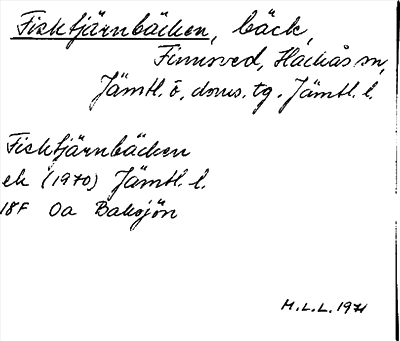 Fisktjärnbäcken, bäck,
Finnsved, Hackås sn,
Jämtl. ö. doms. tg. Jämtl. l.
Fisktjärnbäcken
ek (1970) Jämtl. l.
18F 0a Baksjön
H.L.L. 1971